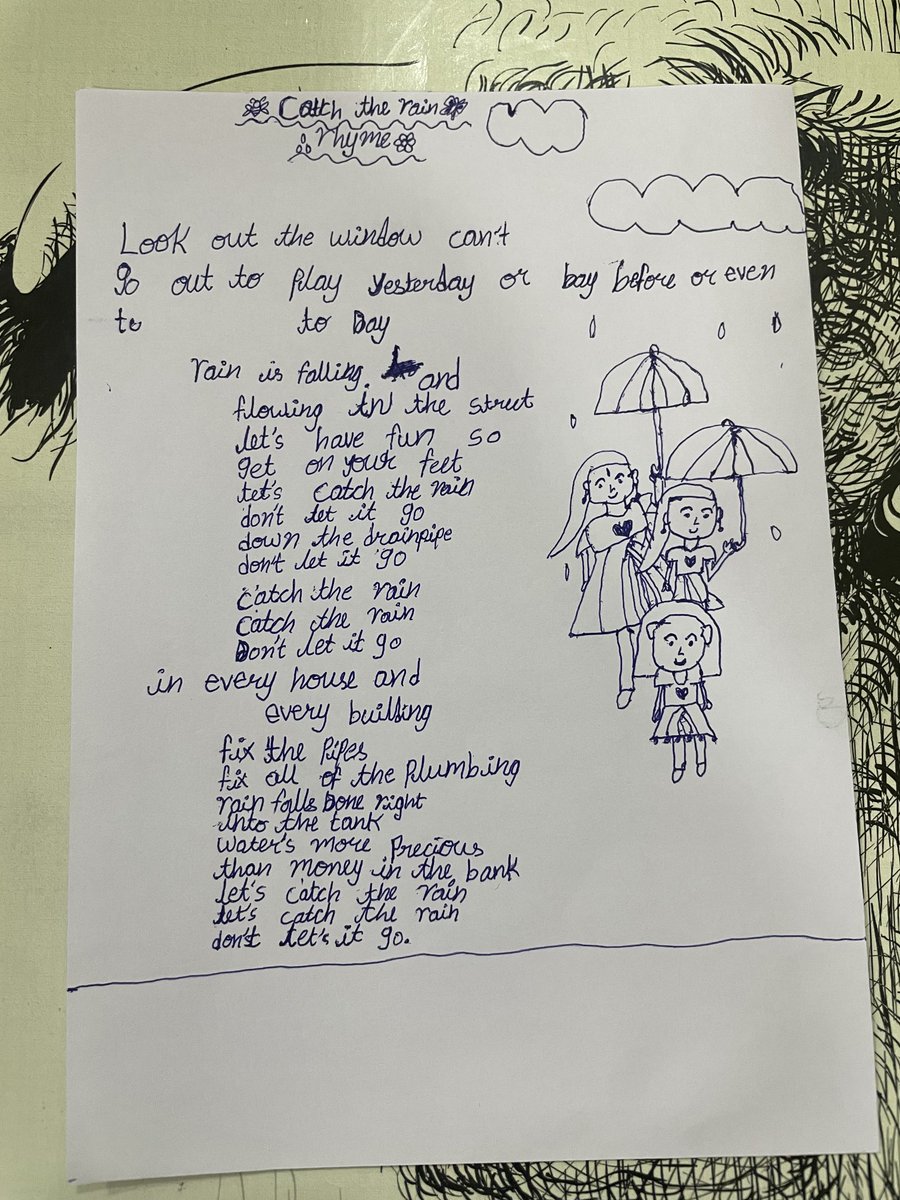 Catch the rain
rhyme
Look out the window can't
go out to play yesterday or bay before or even
to to Day
rain is falling. and
flowing IN the street
let's have fun so
get on your feet
let's catch the rain
don't let it go
down the drainpipe
don't let it go
Catch the rain
Catch the rain
Don't let it go
in every house and
every builling
fix the pipes
fix all of the plumbing
rain falls Done right
into the tank
water's more precious
than money in the bank
let's catch the rain
let's catch the rain
don't let's it go.